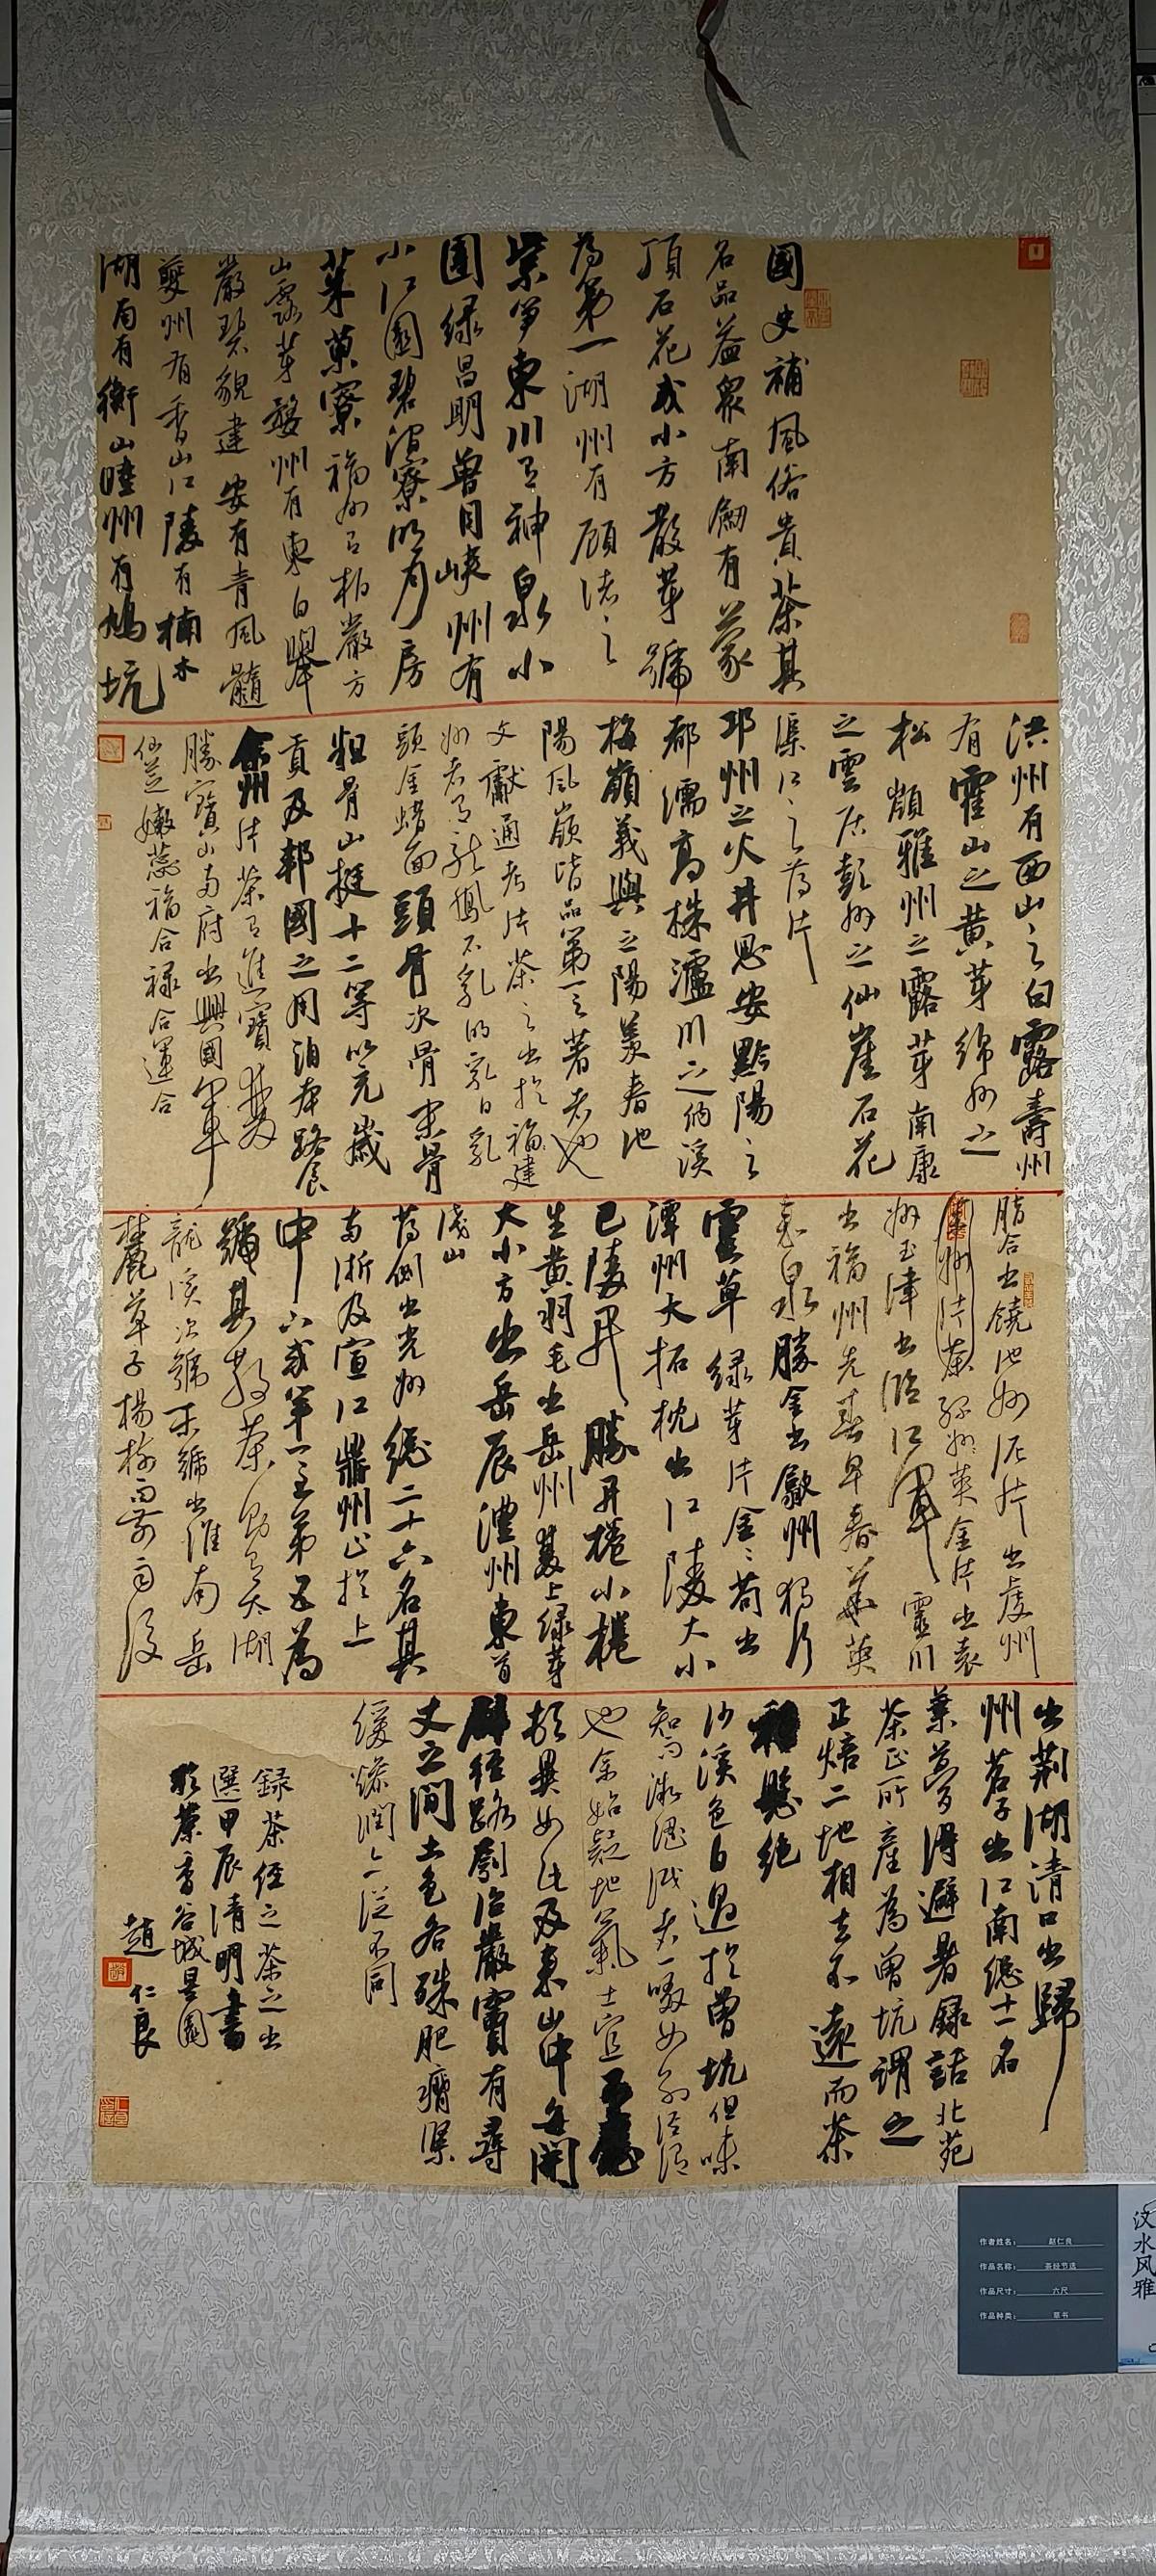 國史補風俗貴茶其
名品益衆南劍有蒙
頂石花或小方散芽號
為第一湖州有顧渚之
紫笋東川有神泉小
團緑昌明獸目峽州有
小江園碧澗寮明月房
茱萸寮福州有柏巖方
山露芽婺州有東白舉
巖碧貌建安有青鳳髓
夔州有香山江陵有楠木
湖南有衡山睦州有鳩坑
洪州有西山之白露壽州
有霍山之黄芽綿州之
松嶺雅州之露芽南康
之雲居彭州之仙崖石花
渠江之薄片
邛州之火井思安黔陽之
都濡高株瀘川之納溪
梅嶺義興之陽羨春池
陽鳳嶺皆品第之著者也
文獻通考片茶之出於福建
州者有龍鳳石乳的乳白乳
頭金蜡面頭骨次骨末骨
粗骨山挺十二等以充歲
貢及邦國之用洎本路食
余州片茶有進寶雙
勝寶山兩府出興國軍
仙芝嫩蕊福合禄合運合
脂合出饒池州泥片出虔州
州片茶綠州英金片出袁
州玉津出臨江軍靈川
出福州先春早春華英
來泉勝金出歙州獨行
靈草緑芽片金金茗出
潭州大拓枕出江陵大小
巴陵開勝開棬小棬
生黄翎毛出岳州雙上緑芽
大小方出岳辰澧州東首
淺山
薄側出光州總二十六名其
兩浙及宣江鼎州止於上
中下或第一至第五為
號其散茶則有太湖
龍溪次號末號出淮南岳
麓草子楊樹雨前雨後
出荆湖清口出歸
州茗子出江南總十一名
葉夢得避暑録話北苑
茶正所産為曾坑謂之
正焙二地相去不遠而茶
種懸绝
沙溪色白過於曾坑但味
短而微澀識者一啜如別涇渭
也余始疑地氣土宜不應
頓異如此及來山中每開
闢徑路刳治巖竇有尋
丈之間土色各殊肥瘠緊
緩燥潤亦從不同
録茶經之茶之出
選甲辰清明書
於茶香谷城
趙仁良
作者姓名：赵仁良
作品名称：茶经节选
作品尺寸：六尺
作品种类：草书
汶水风雅